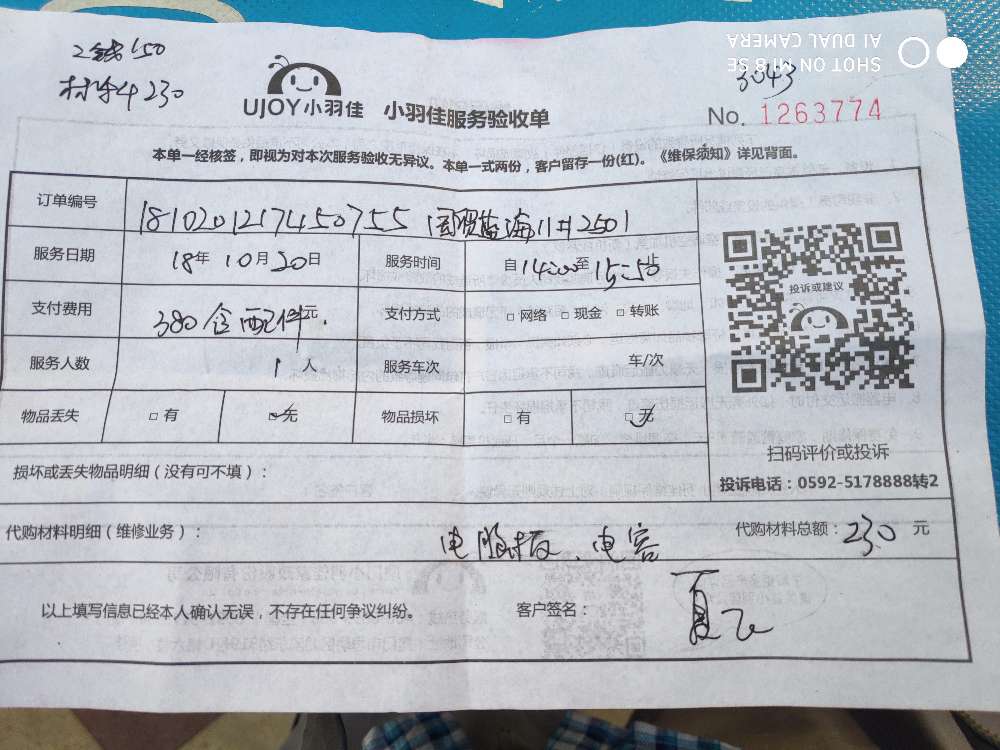 工钱150
材料230
3043
UJOY小羽佳 小羽佳服务验收单
No. 1263774
本单一经核签，即视为对本次服务验收无异议。本单一式两份，客户留存一份(红)。《维保须知》详见背面。
订单编号 181020121745​0755 国贸蓝海11#2501
服务日期 18年10月20日 服务时间 自14:00至15:50止
支付费用 380含配件元. 支付方式 □网络 □现金 □转账
服务人数 1人 服务车次 车/次
物品丢失 □有 ☑无 物品损坏 □有 ☑无
投诉或建议
扫码评价或投诉
投诉电话：0592-5178888转2
损坏或丢失物品明细（没有可不填）：
代购材料明细（维修业务）： 电脑板、电容 代购材料总额：230元
以上填写信息已经本人确认无误，不存在任何争议纠纷。 客户签名：夏
SHOT ON MI 8 SE
AI DUAL CAMERA